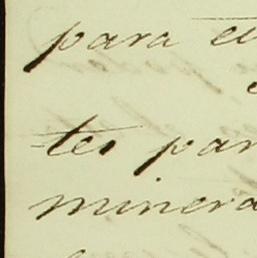 para e
-tes par
minera